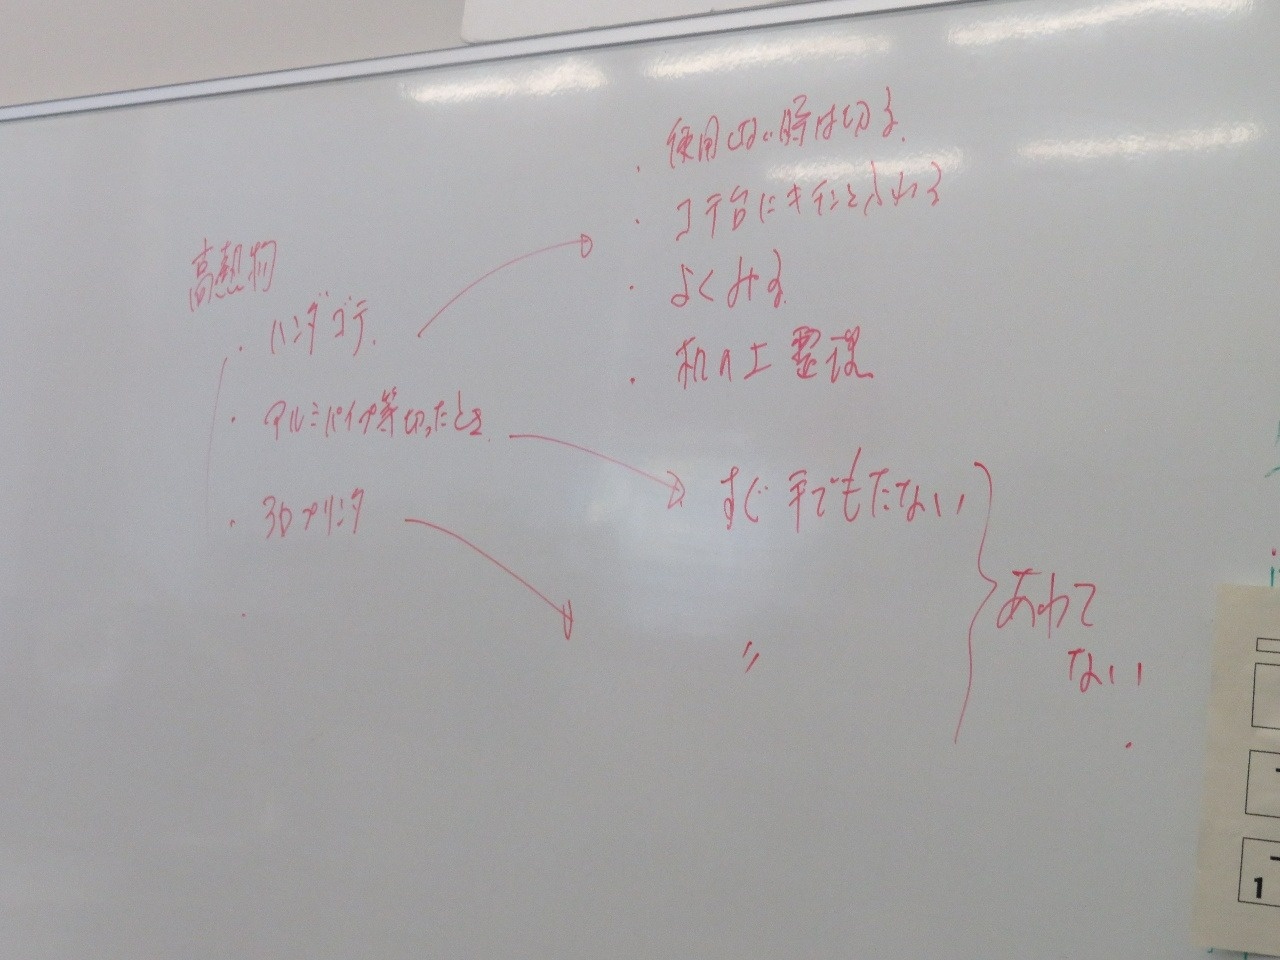 高熱物
・ハンダゴテ.
・アルミパイプ等切ったとき
・3Dプリンタ
・使用しない時は切る.
・コテ台にキチンと
・よくみる
・机の上整理
すぐ手でもたない
〃
あわて
ない.
1